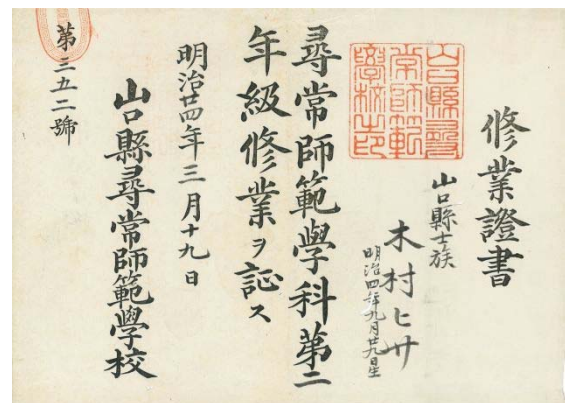 修業證書
山口縣士族
木村ヒサ
明治四年九月廿九日生
山口縣尋
常師範
學校印
尋常師範學科第二
年級修業ヲ証ス
明治廿四年三月十九日
山口縣尋常師範學校
第三五二號